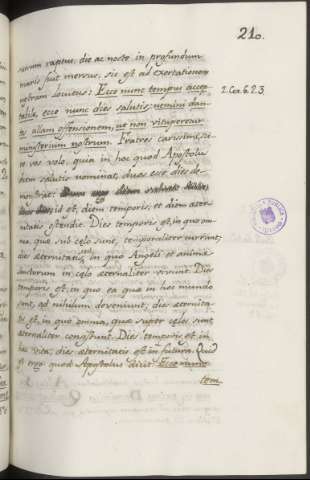 210.
rerum raptus, die ac nocte in profundum
maris fuit mersus, sic est ad exortationem
vestram locutus: Ecce nunc tempus accep
tabile, ecce nunc dies salutis; nemini dan
tes ullam offensionem, ut non vituperetur
ministerium nostrum. Fratres carissimi, sci
re vos volo, quia in hoc quod Apostolus
diem salutis nominat, duos esse dies de
monstrat:
id est, diem temporis, et diem aeter
nitatis ostendit. Dies temporis est, in quo om
nia, quae sub celo sunt, temporaliter currunt;
dies aeternitatis, in quo Angeli et animae
Sanctorum in celo aeternaliter vivunt. Dies
temporis est, in quo ea quae in hoc mundo
sunt, ad nihilum deveniunt; dies aeternita
tis est, in quo omnia, quae super celos sunt,
aeternaliter consistunt. Dies temporis est in
hac vita; dies aeternitatis est in futura. Quid
est ergo quod Apostolus dicit: Ecce nunc
tem
2. Cor. 6. 2. 3